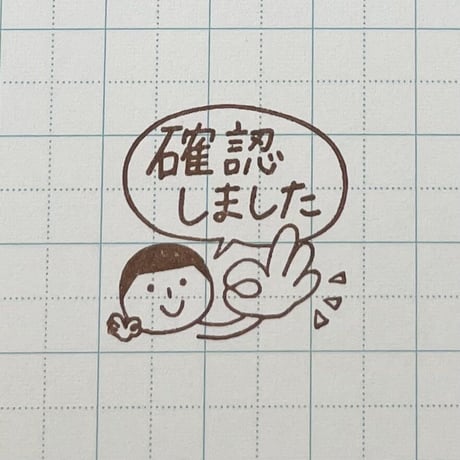 確認
しました